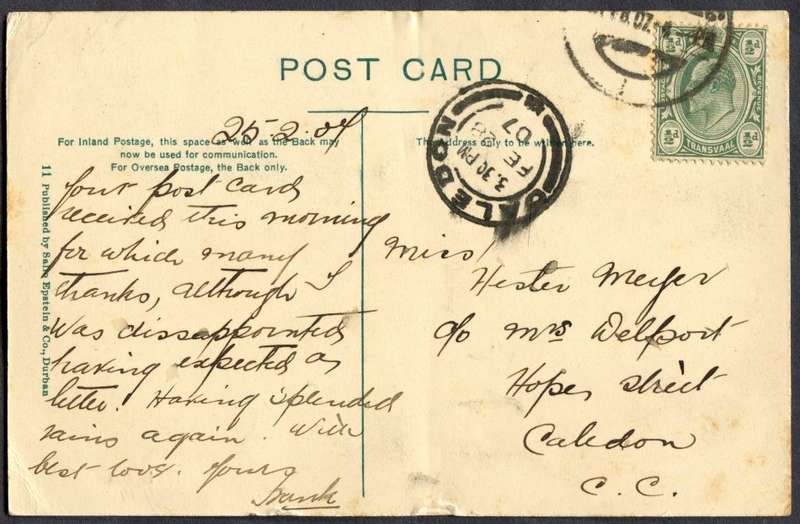 POST CARD
25-2.07
For Inland Postage, this space as well as the Back may
now be used for communication.
For Oversea Postage, the Back only.
The Address only to be written here.
11 Published by Sallo Epstein & Co., Durban
Your post card
received this morning
for which many
thanks, although I
was dissappointed
having expected a
letter. Having splended
rains again. With
best love. Yours
Frank
Miss
Hester Meyer
c/o Mrs Delport
Hope street
Caledon
C. C.
CALEDON
3.30 PM
FE 28
07
½d
½d
POSTAGE
REVENUE
½d
½d
TRANSVAAL